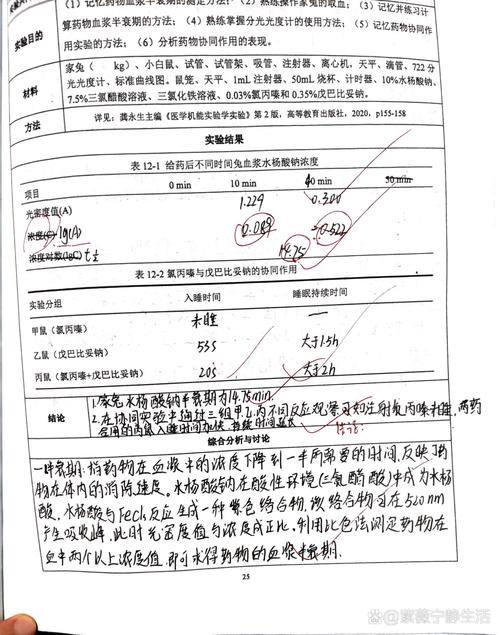 (1)记忆药物血浆半衰期的测定方法;(2)熟练操作家兔的取血;(3)记忆并练习计
实验目的
算药物血浆半衰期的方法;(4)熟练掌握分光光度计的使用方法;(5)记忆药物协同作
用实验的方法;(6)分析药物协同作用的表现。
材料
家兔( kg)、小白鼠、试管、试管架、吸管、注射器、离心机、天平、滴管、722分
光光度计、标准曲线图。鼠笼、天平、1mL注射器、50mL烧杯、计时器、10%水杨酸钠、
7.5%三氯醋酸溶液、三氯化铁溶液、0.03%氯丙嗪和0.35%戊巴比妥钠。
方法
详见:龚永生主编《医学机能实验学实验》第2版,高等教育出版社,2020,p155-158
实验结果
表 12-1 给药后不同时间兔血浆水杨酸钠浓度
项目 0 min 10 min 40 min 50 min
光密度值(A) 1.229 0.300
浓度(C) lg(A) 0.089 -0.522
浓度对数(lgC) t½ 14.75
表 12-2 氯丙嗪与戊巴比妥钠的协同作用
实验分组 入睡时间 睡眠持续时间
甲鼠(氯丙嗪) 未睡 —
乙鼠(戊巴比妥钠) 53s 大于1.5h
丙鼠(氯丙嗪+戊巴比妥钠) 20s 大于2h
结论
1.家兔水杨酸钠半衰期为14.75min.
2.在协同实验中通过三组甲乙丙不同反应观察可知注射氯丙嗪
合用的丙鼠入睡时间加快,持续时间延长
综合分析与讨论
半衰期:指药物在血浆中的浓度下降到一半所需要的时间,反映了药
物在体内的消除速度。水杨酸钠在酸性环境(三氯醋酸)中成为水杨
酸,水杨酸与FeCl₃反应生成一种紫色络合物,该络合物可在520nm
产生吸收峰,此时光密度值与浓度成正比,利用比色法测定药物在
血中两个以上浓度值,即可求得药物的血浆半衰期.
25
紫薇宁静生活